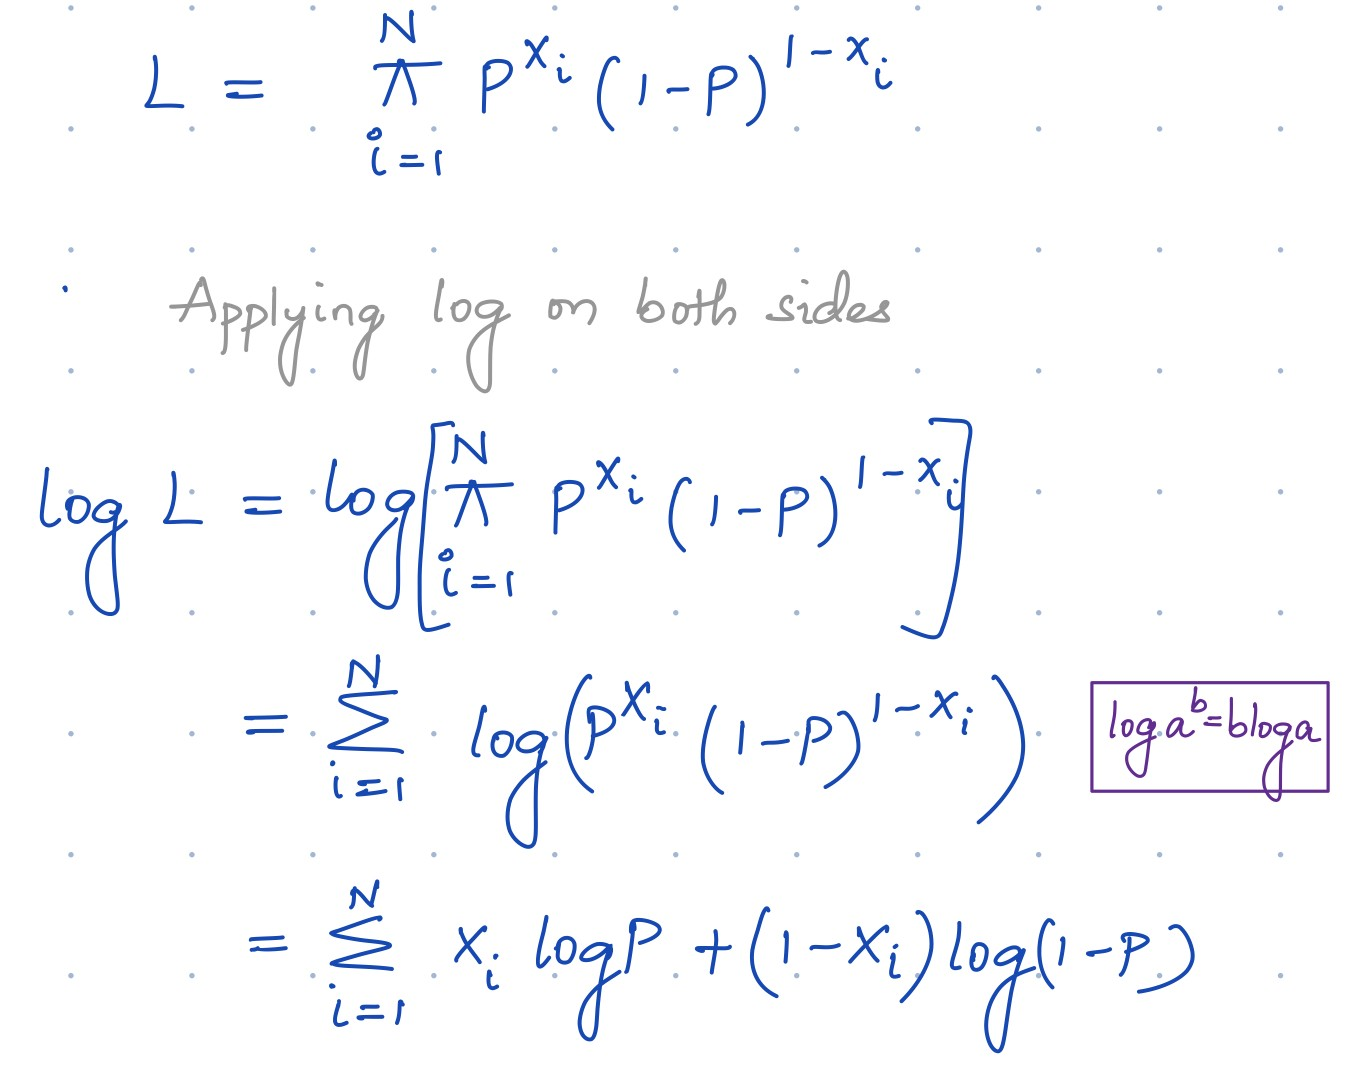 L = ∏_{i=1}^{N} P^{x_i} (1-P)^{1-x_i}
Applying log on both sides
log L = log[∏_{i=1}^{N} P^{x_i} (1-P)^{1-x_i}]
= Σ_{i=1}^{N} log(P^{x_i} (1-P)^{1-x_i})
log a^b = b log a
= Σ_{i=1}^{N} x_i log P + (1-x_i) log(1-P)